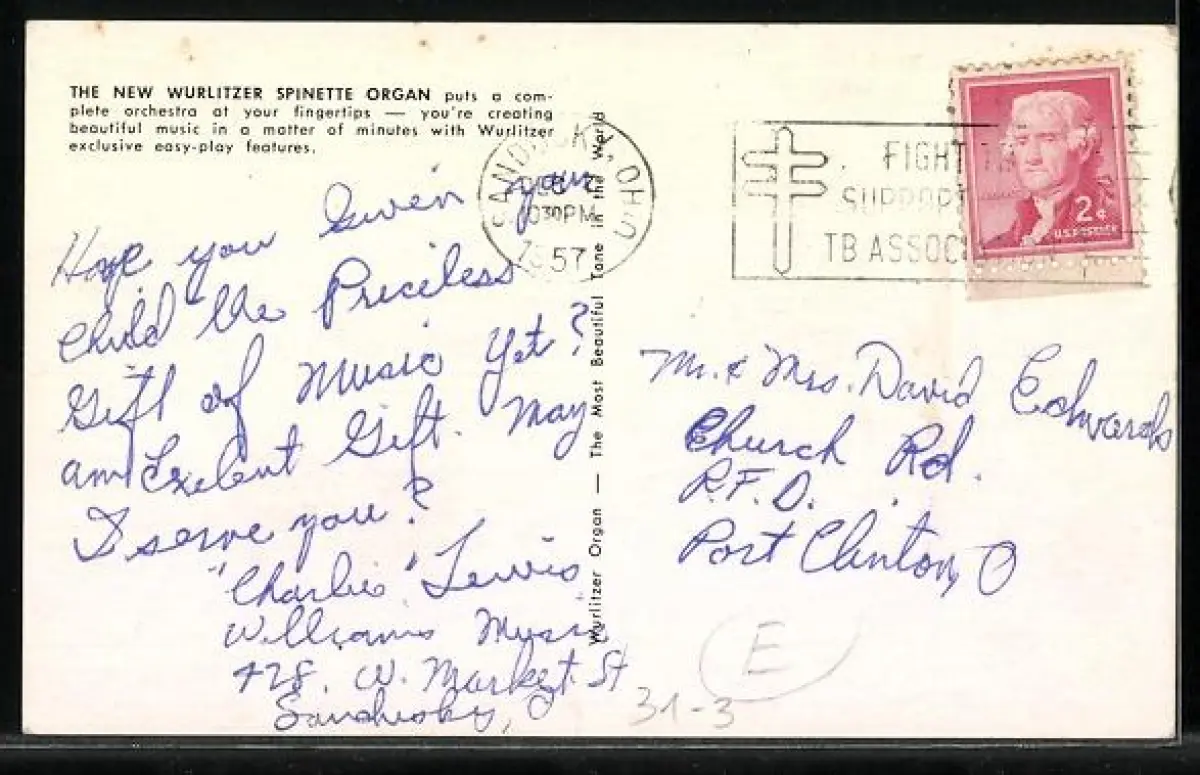 THE NEW WURLITZER SPINETTE ORGAN puts a com-
plete orchestra at your fingertips — you're creating
beautiful music in a matter of minutes with Wurlitzer
exclusive easy-play features.
Hope you Given your
Child the Priceless
Gift of Music Yet?
an Exelent Gift. May
I serve you?
"Charlie" Lewis
Williams Music
428. W. Market St
Sandusky, O
Wurlitzer Organ — The Most Beautiful Tone in the World
SANDUSKY, OHIO
1030PM
57
FIGHT TB
SUPPORT
TB ASSOC
2¢
U.S. POSTAGE
Mr. & Mrs. David Edwards
Church Rd.
R.F.D.
Port Clinton, O
E
31-3